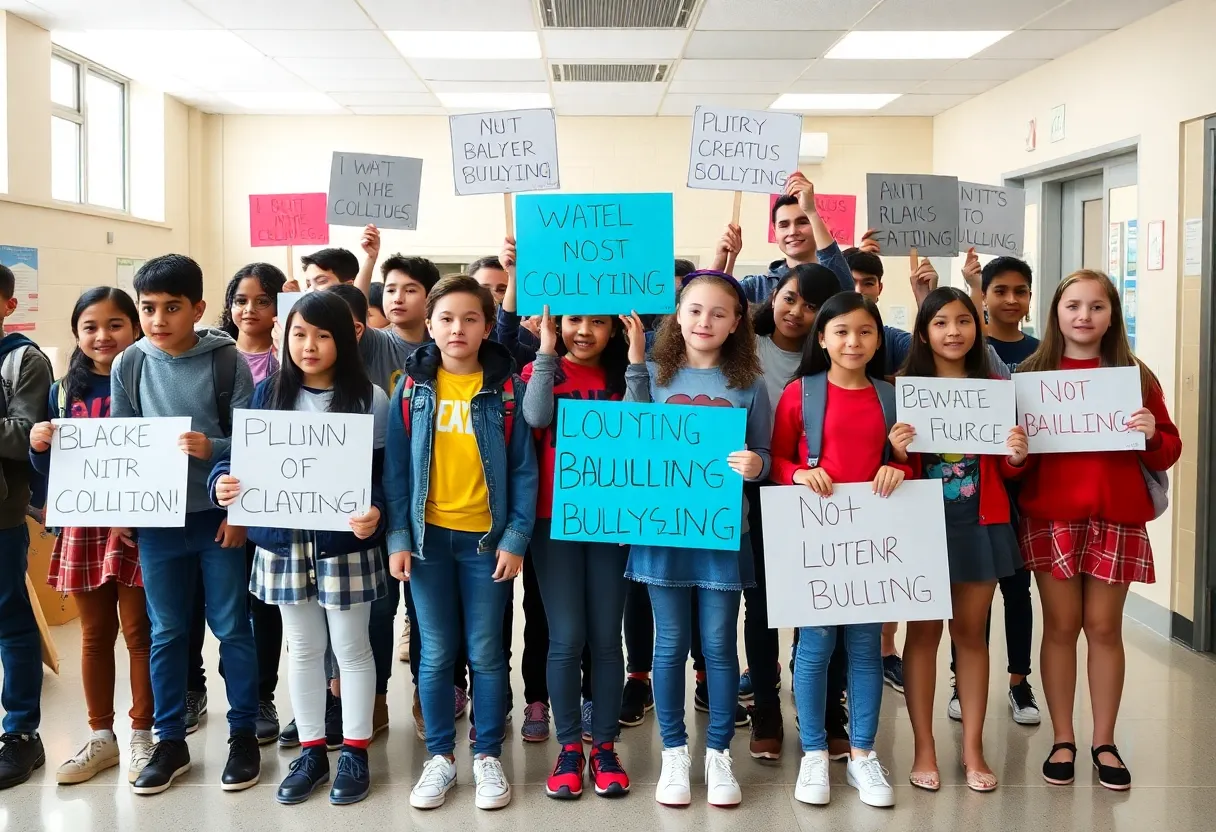 NUT
BALYER
BULLYING
PUTRY
CREATUS
SOLLYING
I WAT
NHE
COLLIUES
WATEL
NOST
COLLYING
ANTI
RLAKS
TO
BLACKE
NITR
COLLITION!
PLUNN
OF
CLAVTING!
LOUYING
BAULLING
BEWATE
FLURCE
NOT
BAILLING
Not
LUTENR
BULLING